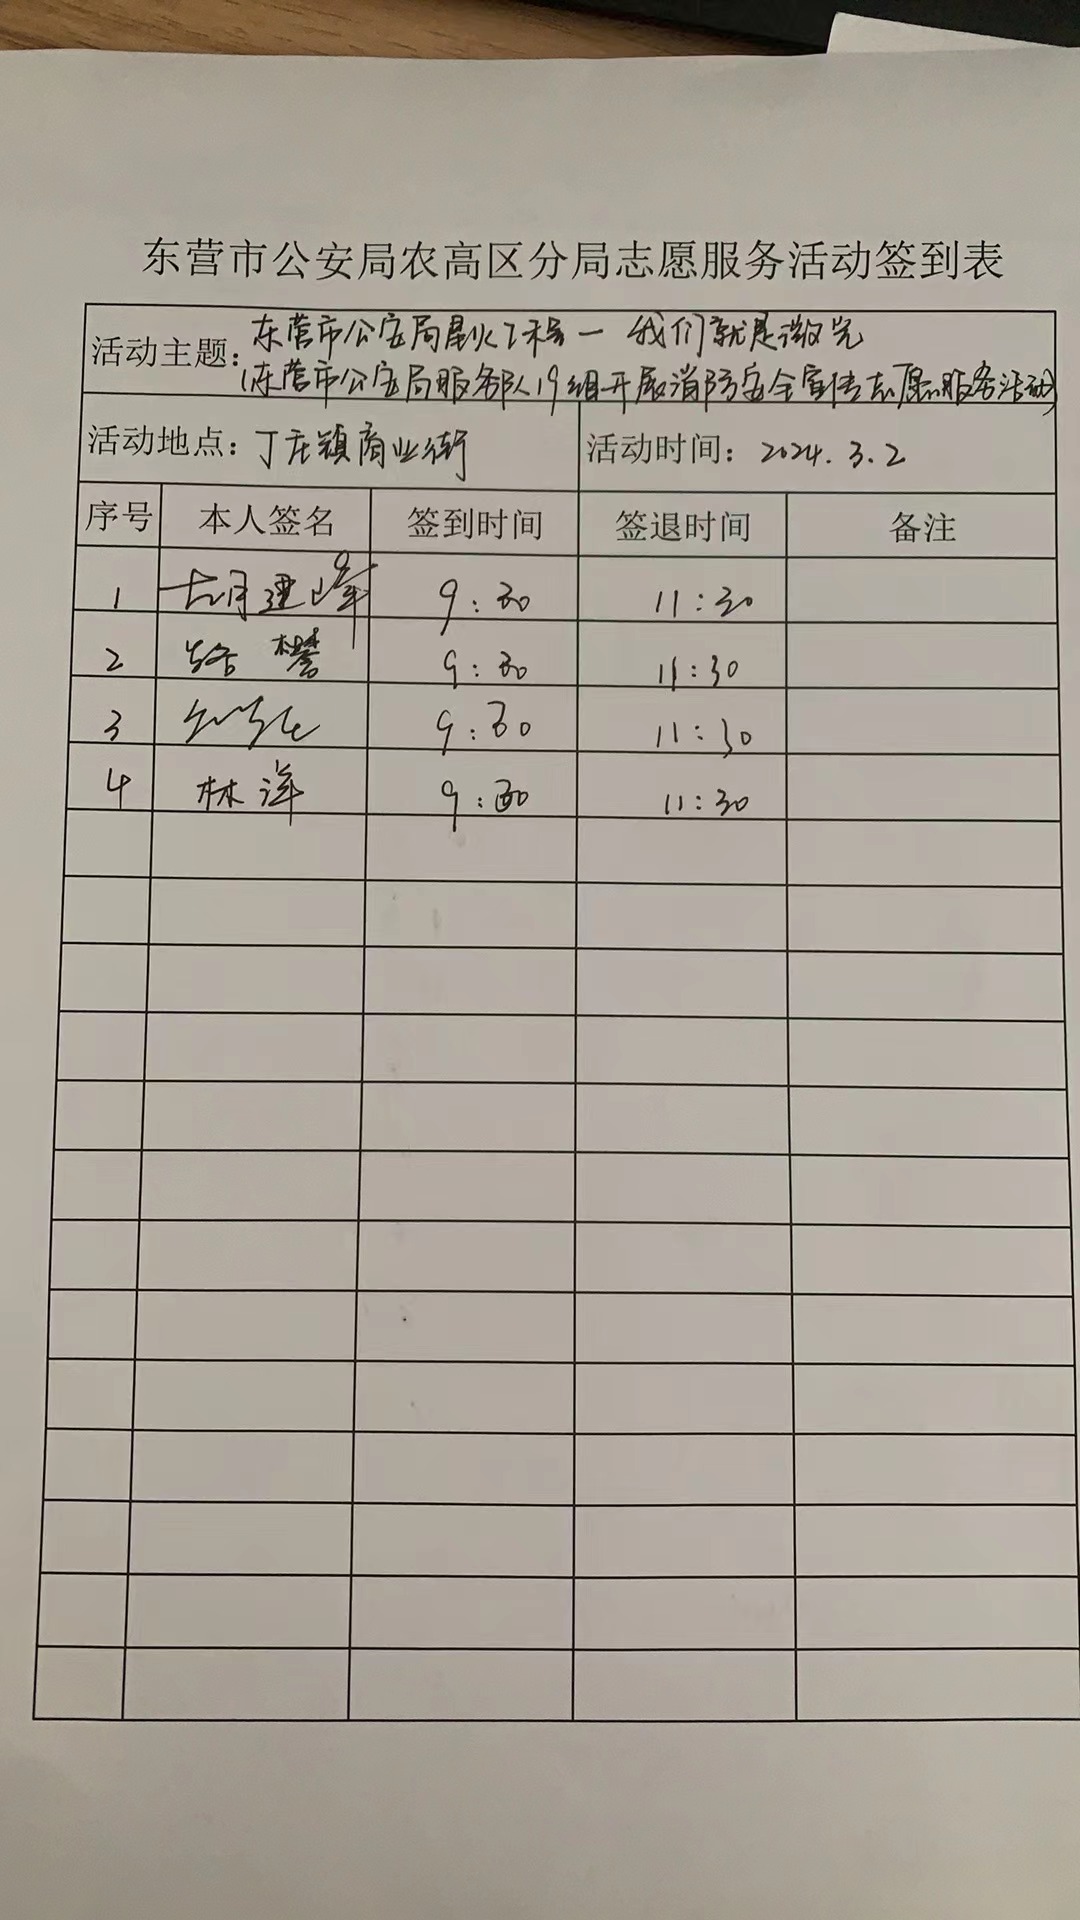 东营市公安局农高区分局志愿服务活动签到表
活动主题：东营市公安局星火工程一 我们就是微光
（东营市公安局服务队19组开展消防安全宣传志愿服务活动）
活动地点：丁庄镇商业街 活动时间：2024.3.2
序号 本人签名 签到时间 签退时间 备注
1 胡建峰 9:30 11:30
2 9:30 11:30
3 9:30 11:30
4 林洋 9:30 11:30